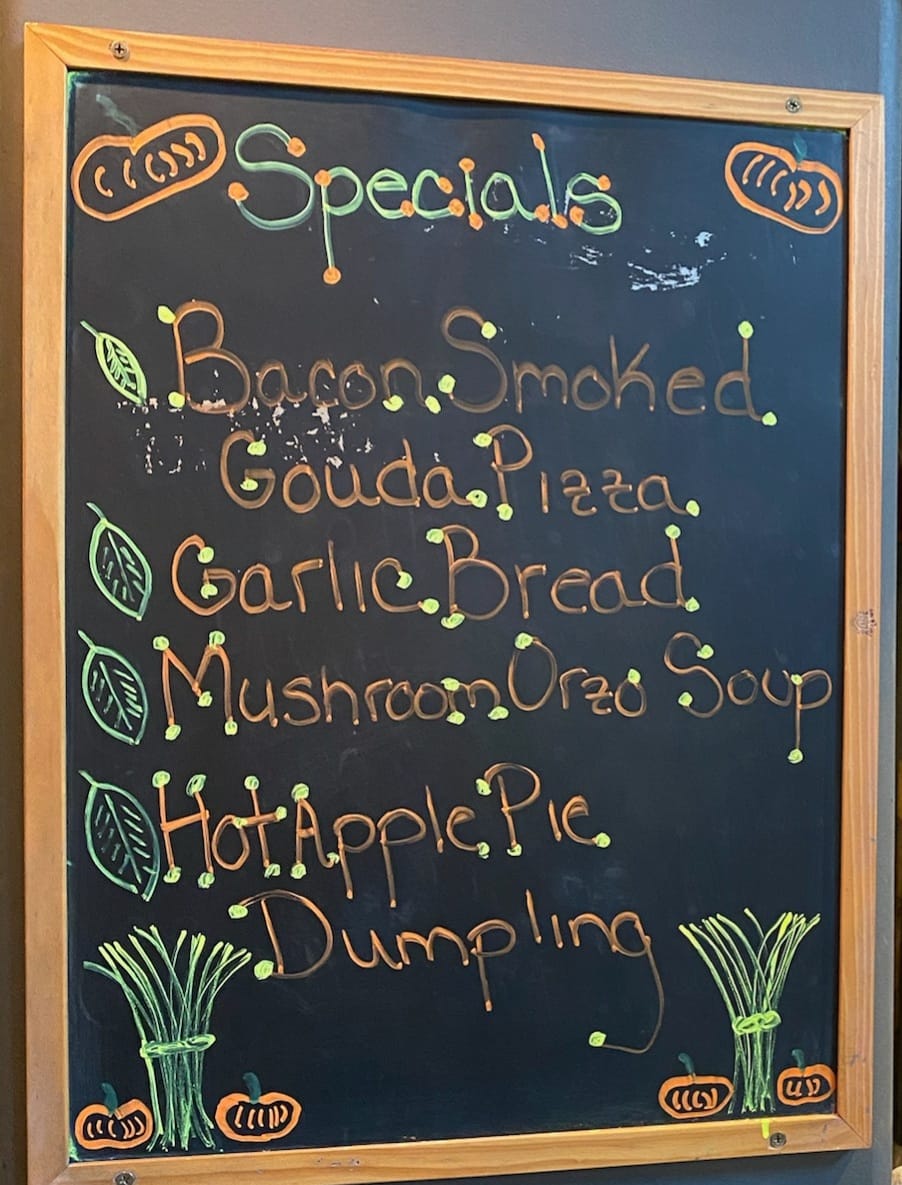 Specials
Bacon Smoked
Gouda Pizza
Garlic Bread
Mushroom Orzo Soup
Hot Apple Pie
Dumpling